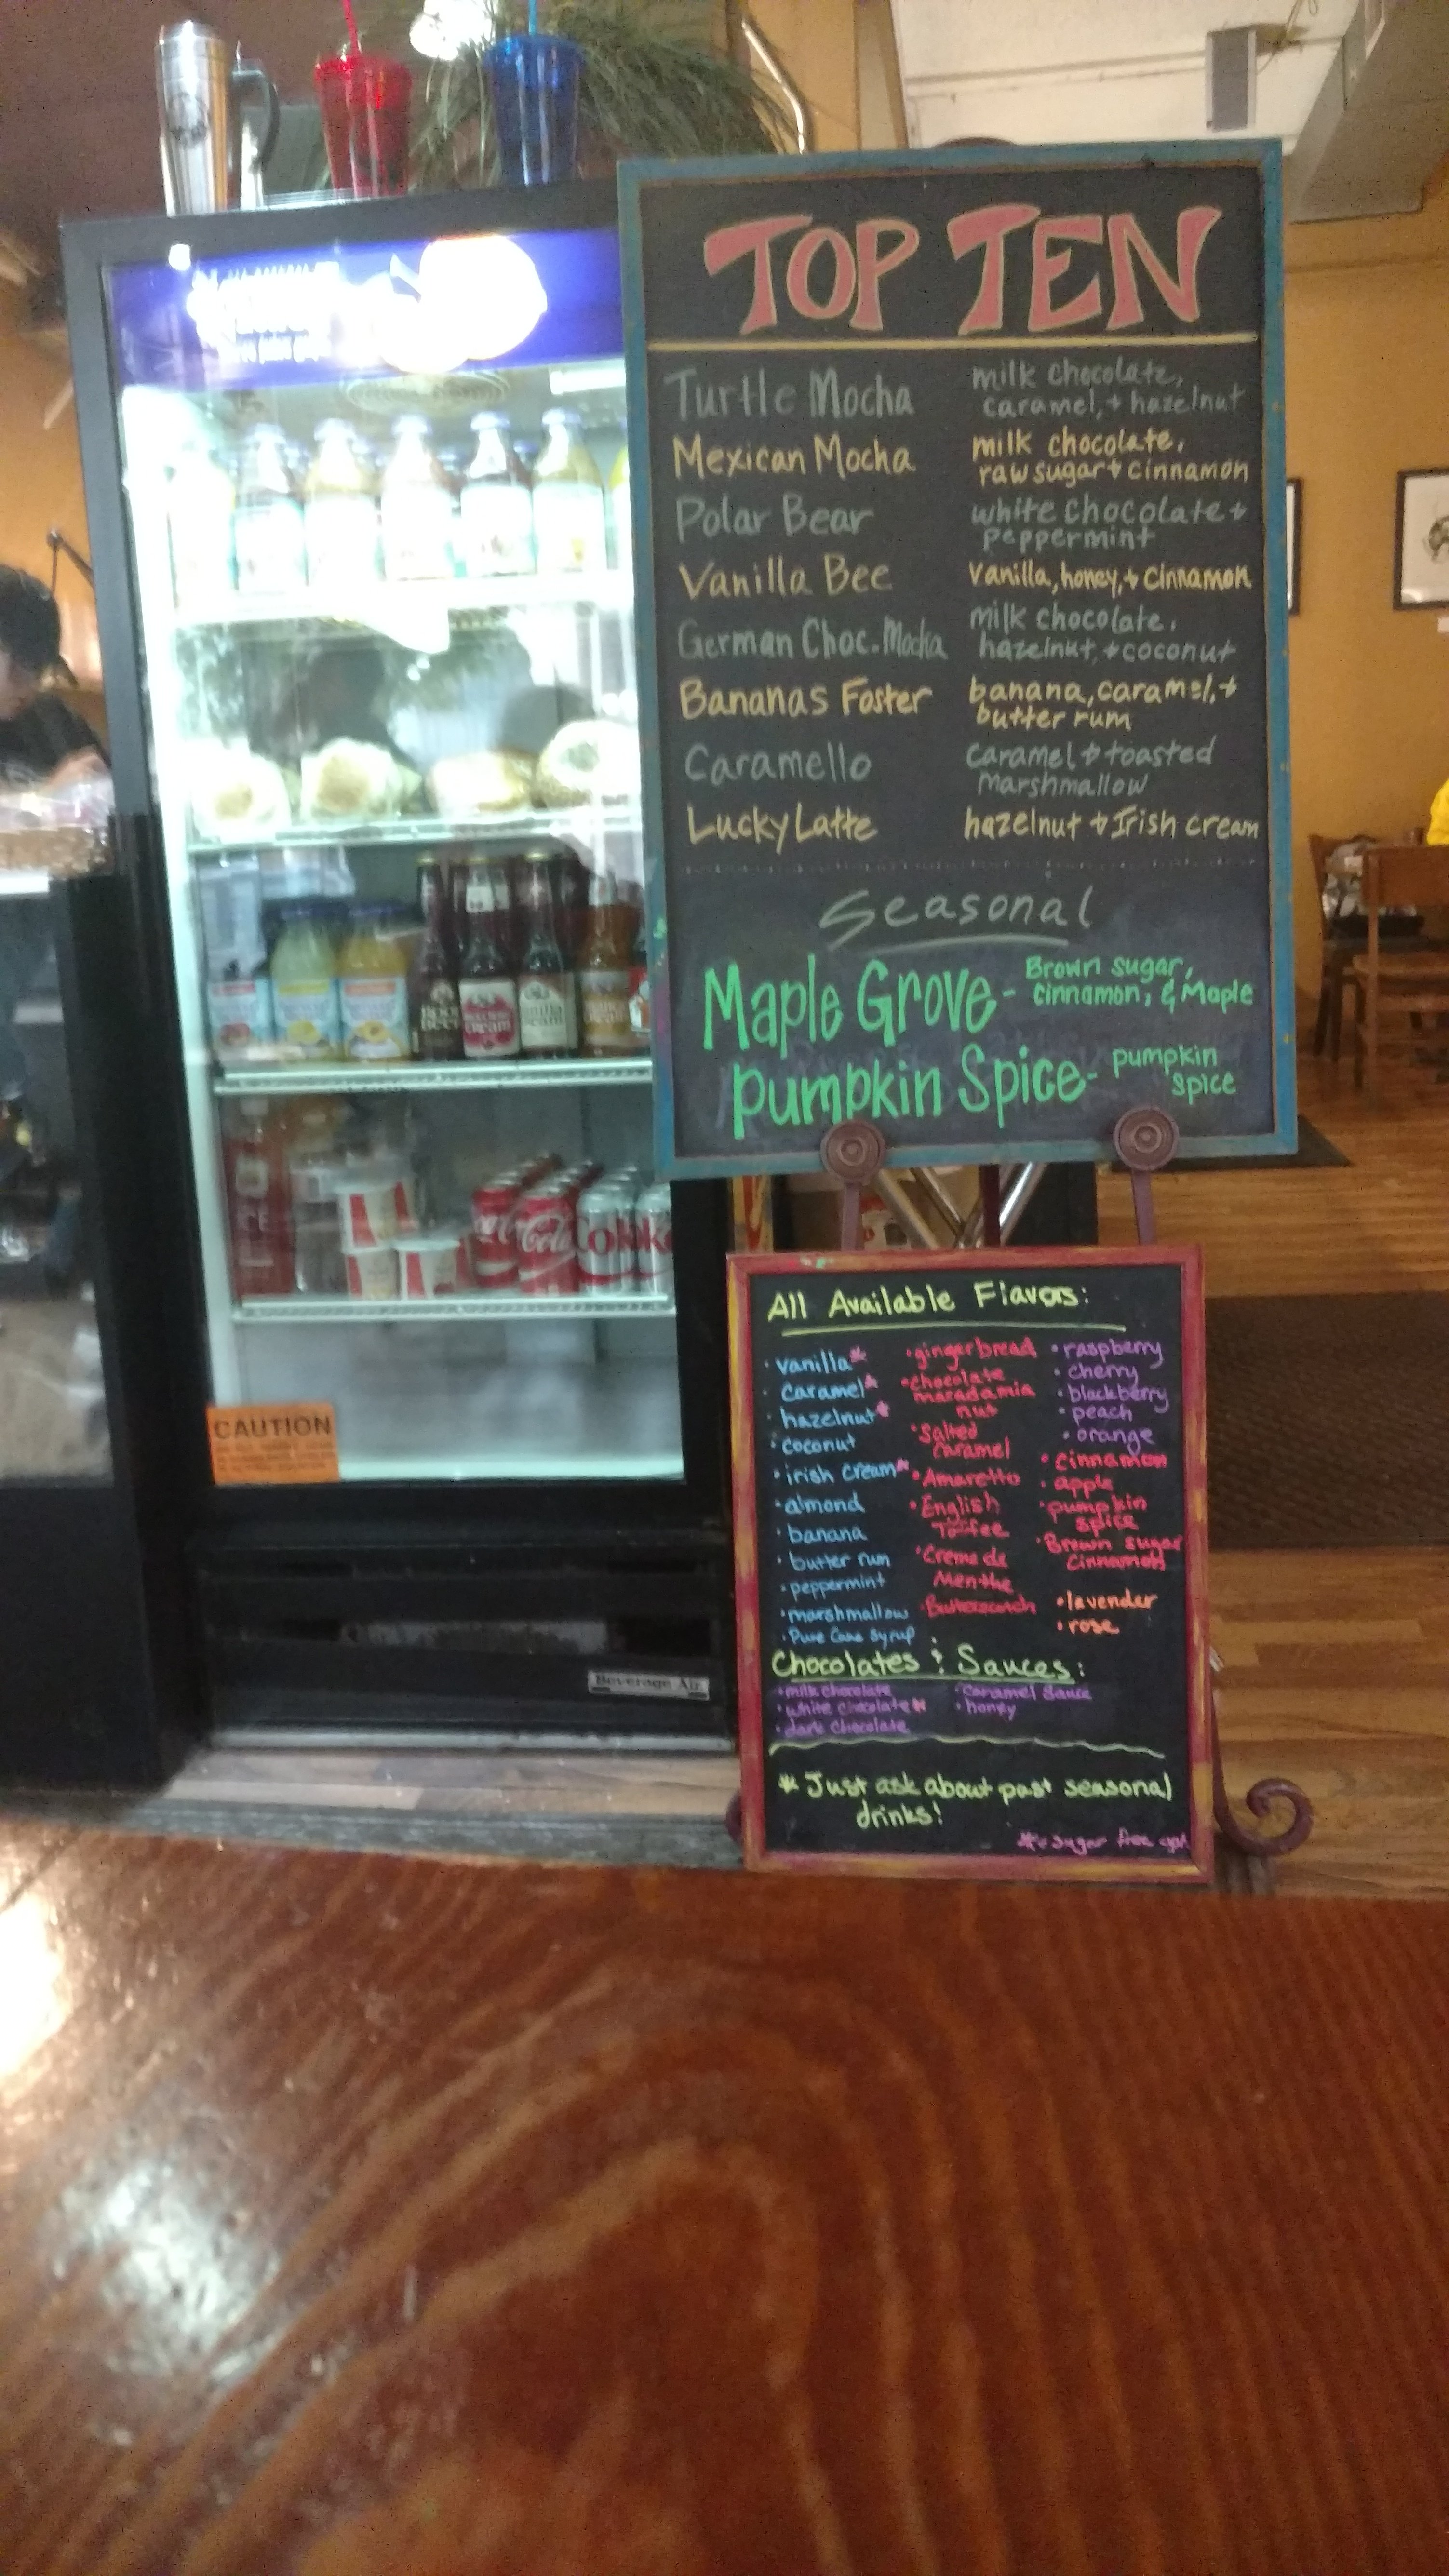 TOP TEN
Turtle Mocha milk chocolate,
caramel, + hazelnut
Mexican Mocha milk chocolate,
raw sugar + cinnamon
Polar Bear white chocolate +
peppermint
Vanilla Bee vanilla, honey, + cinnamon
German Choc. Mocha milk chocolate,
hazelnut, + coconut
Bananas Foster banana, caramel, +
butter rum
Caramello caramel + toasted
marshmallow
Lucky Latte hazelnut + Irish cream
Seasonal
Maple Grove - Brown sugar,
cinnamon, & Maple
pumpkin Spice - pumpkin
spice
All Available Flavors:
• vanilla*
• caramel*
• hazelnut*
• coconut
• irish cream*
• almond
• banana
• butter rum
• peppermint
• marshmallow
• Pure Cane Syrup
• gingerbread
• chocolate
macadamia
nut
• Salted
Caramel
• Amaretto
• English
Toffee
• Creme de
Menthe
• Butterscotch
• raspberry
• cherry
• blackberry
• peach
• orange
• cinnamon
• apple
• pumpkin
spice
• Brown sugar
Cinnamon
• lavender
• rose
Chocolates & Sauces:
• milk chocolate
• white chocolate*
• dark chocolate
• Caramel Sauce
• honey
* Just ask about past seasonal
drinks!
sugar free
CAUTION
Beverage Air
Coke